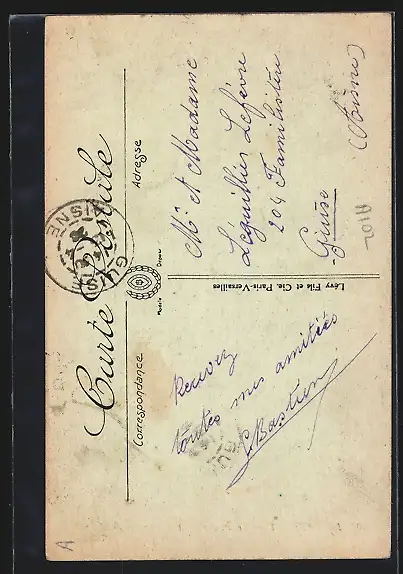 Carte Postale
Correspondance
Adresse
Modèle
Déposé
Recevez
toutes mes amitiés
Bastien
Lévy Fils et Cie, Paris-Versailles
Mr et Madame
Lequillier Lefèvre
204 Familistère
Guise
(Aisne)
GUISE
AISNE
A